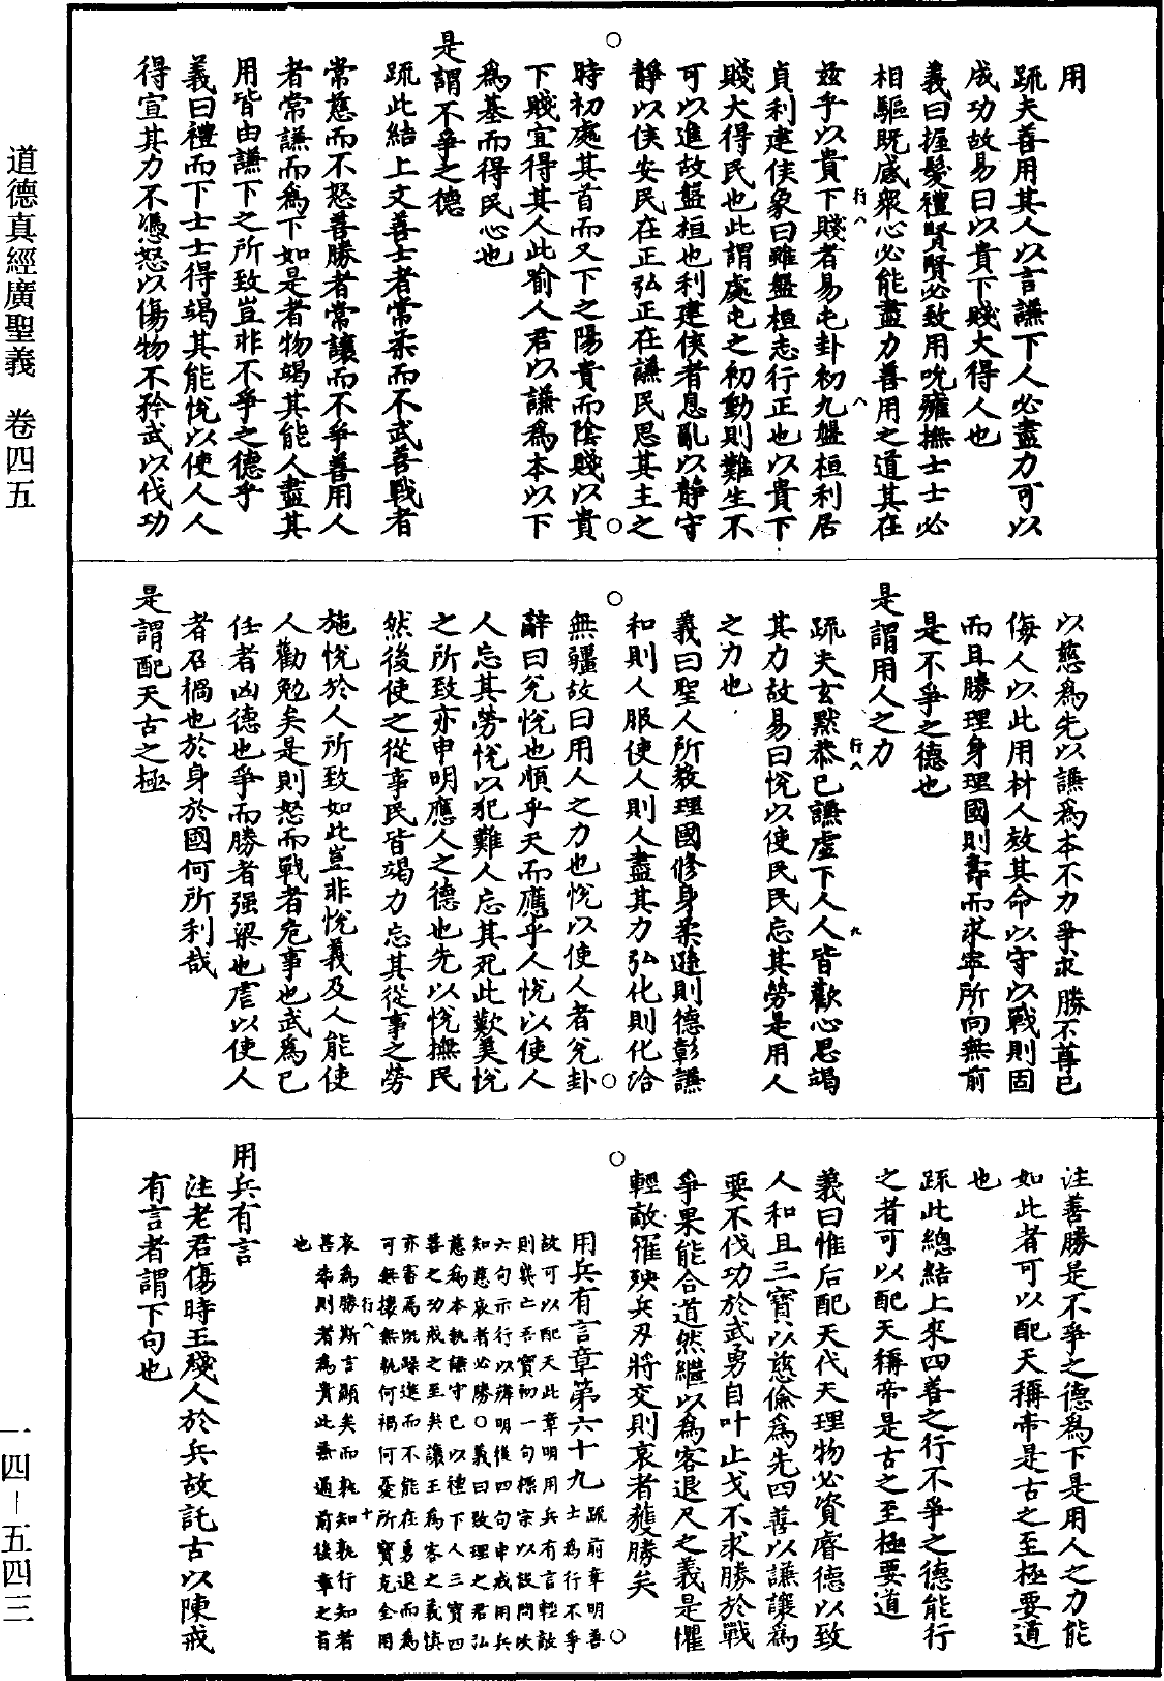 用
疏夫善用其人以言謙下人必盡力可以
成功故易曰以貴下賤大得人也
義曰握髮禮賢賢必致用吮癰撫士士必
相驅既感衆心必能盡力善用之道其在
茲乎以貴下賤者易屯卦初九盤桓利居
貞利建侯象曰雖盤桓志行正也以貴下
賤大得民也此謂處屯之初動則難生不
可以進故盤桓也利建侯者息亂以静守
靜以侯安民在正弘正在謙民思其主之
時初處其首而又下之陽貴而陰賤以貴
下賤宜得其人此喻人君以謙爲本以下
爲基而得民心也
是謂不爭之德
疏此結上文善士者常柔而不武善戰者
常慈而不怒善勝者常讓而不爭善用人
者常謙而爲下如是者物竭其能人盡其
用皆由謙下之所致豈非不爭之德乎
義曰禮而下士士得竭其能悅以使人人
得宣其力不憑怒以傷物不矜武以伐功
以慈爲先以謙爲本不力爭求勝不尊己
侮人以此用材人效其命以守以戰則固
而且勝理身理國則壽而求寧所向無前
是不爭之德也
是謂用人之力
疏夫玄默恭已謙虛下人人皆歡心思竭
其力故易曰悅以使民民忘其勞是用人
之力也
義曰聖人所教理國修身柔遜則德彰謙
和則人服使人則人盡其力弘化則化洽
無疆故曰用人之力也悅以使人者兌卦
辭曰兌悅也順乎天而應乎人悅以使人
人忘其勞悅以犯難人忘其死此歎美悅
之所致亦申明應人之德也先以悅撫民
然後使之從事民皆竭力忘其從事之勞
施悅於人所致如此豈非悅義及人能使
人勸勉矣是則怒而戰者危事也武爲已
任者凶德也爭而勝者强梁也虐以使人
者召禍也於身於國何所利哉
是謂配天古之極
注善勝是不爭之德爲下是用人之力能
如此者可以配天稱帝是古之至極要道
也
疏此總結上來四善之行不爭之德能行
之者可以配天稱帝是古之至極要道
義曰惟后配天代天理物必資睿德以致
人和且三寶以慈儉爲先四善以謙讓爲
要不伐功於武勇自叶止戈不求勝於戰
爭果能合道然繼以爲客退尺之義是懼
輕敵罹殃兵刃將交則哀者獲勝矣
用兵有言章第六十九
疏前章明善士爲行不爭
故可以配天此章明用兵有言輕敵
則喪亡吾寶初一句標宗以設問次
六句示行以辯明後四句申戒用兵
知慈哀者必勝○義曰致理之君弘
慈爲本執謙守已以禮下人三寶四
善之功戒之至矣讓主爲客之義慎
亦審焉既躁進而不能在勇退而爲
可無攘無執何禍何憂所寶克全用
哀爲勝斯言顯矣而孰知孰行知者
甚希則者爲貴此無適前後章之旨
也
用兵有言
注老君傷時王殘人於兵故託古以陳戒
有言者謂下句也
道德真經廣聖義　卷四五
一四－五四三